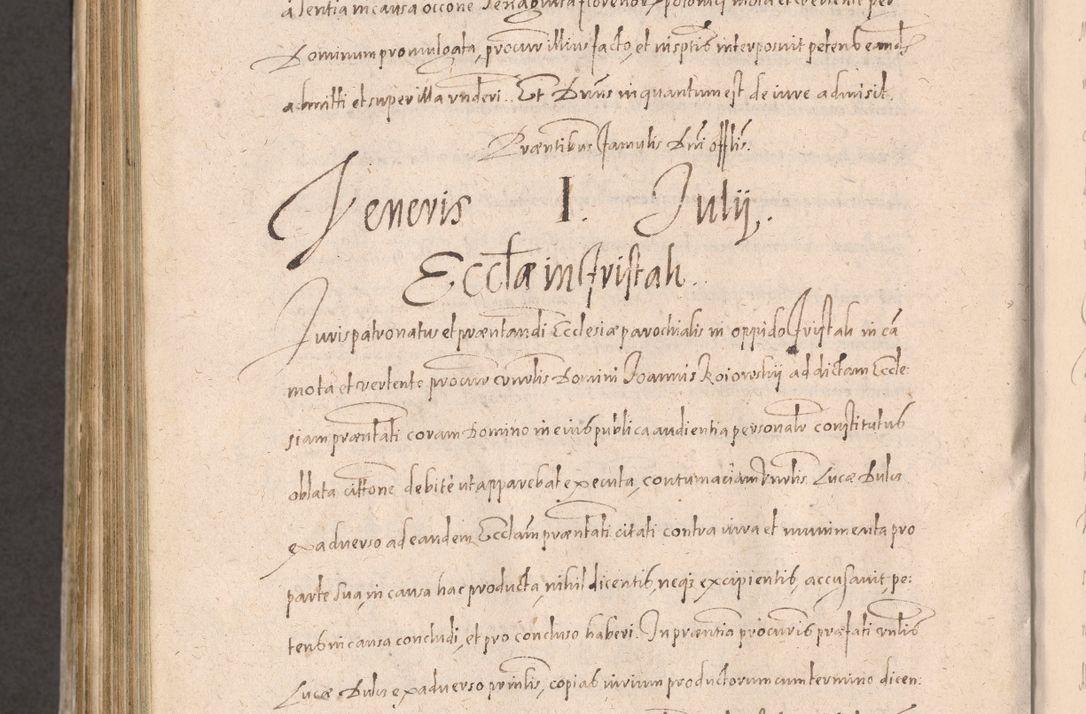 a sententia in causa occõne sexaginta florenor polonici mota et vertente per
Dominum promulgata, procur illius facto, et in sptis interposuit petens eandẽ
admitti et super illa rñderi. Et Dnus in quantum est de iure admisit.
Præntibus famulis Dni offlis.
Veneris I. Julij.
Ecclæ in Fristak.
Juris patronatus et præntandi Ecclesiæ parochialis in oppido Fristak in cã
mota et vertente procur vnrblis Domini Joannis Koiorwskij ad dictam Eccle:
siam præntati coram Domino in eius publica audientia personalr constitutus
oblata cittone debite ut apparebat executa, contumaciam Vnrblis Lucæ Bulcs
ex adverso ad eandem Ecclam præntati citati contra iura et munimenta pro
parte sua, in causa hac producta, nihil dicentis, neqz excipientis, accusavit, pe:
tens in causa concludi, et pro concluso haberi. In præntia procuris præfati vnrblis
Lucæ Bulcs ex adverso prinlis, copias iurium productorum cum termino dicen: